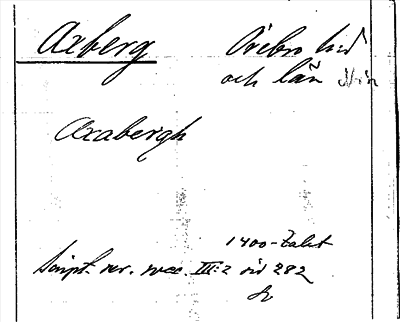 Axberg Örebro hd
och län
Axabergh
1400-talet
Script. rer. svec. III:2 sid 282